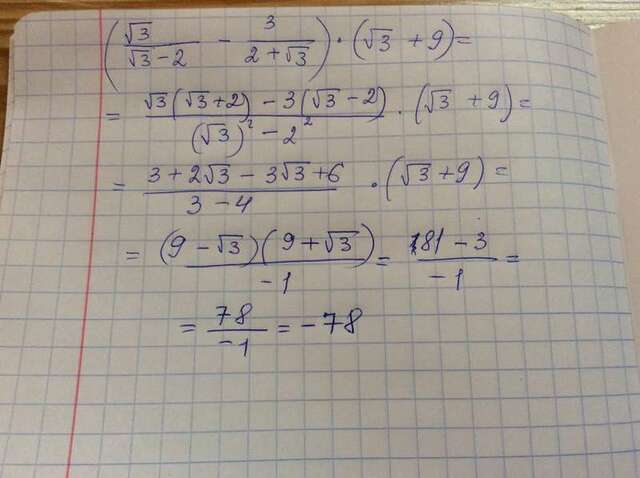 (√3/(√3-2) - 3/(2+√3)) · (√3 + 9) =
= (√3(√3+2) - 3(√3-2))/((√3)² - 2²) · (√3 + 9) =
= (3+2√3-3√3+6)/(3-4) · (√3+9) =
= ((9-√3)(9+√3))/(-1) = (81-3)/(-1) =
= 78/(-1) = -78